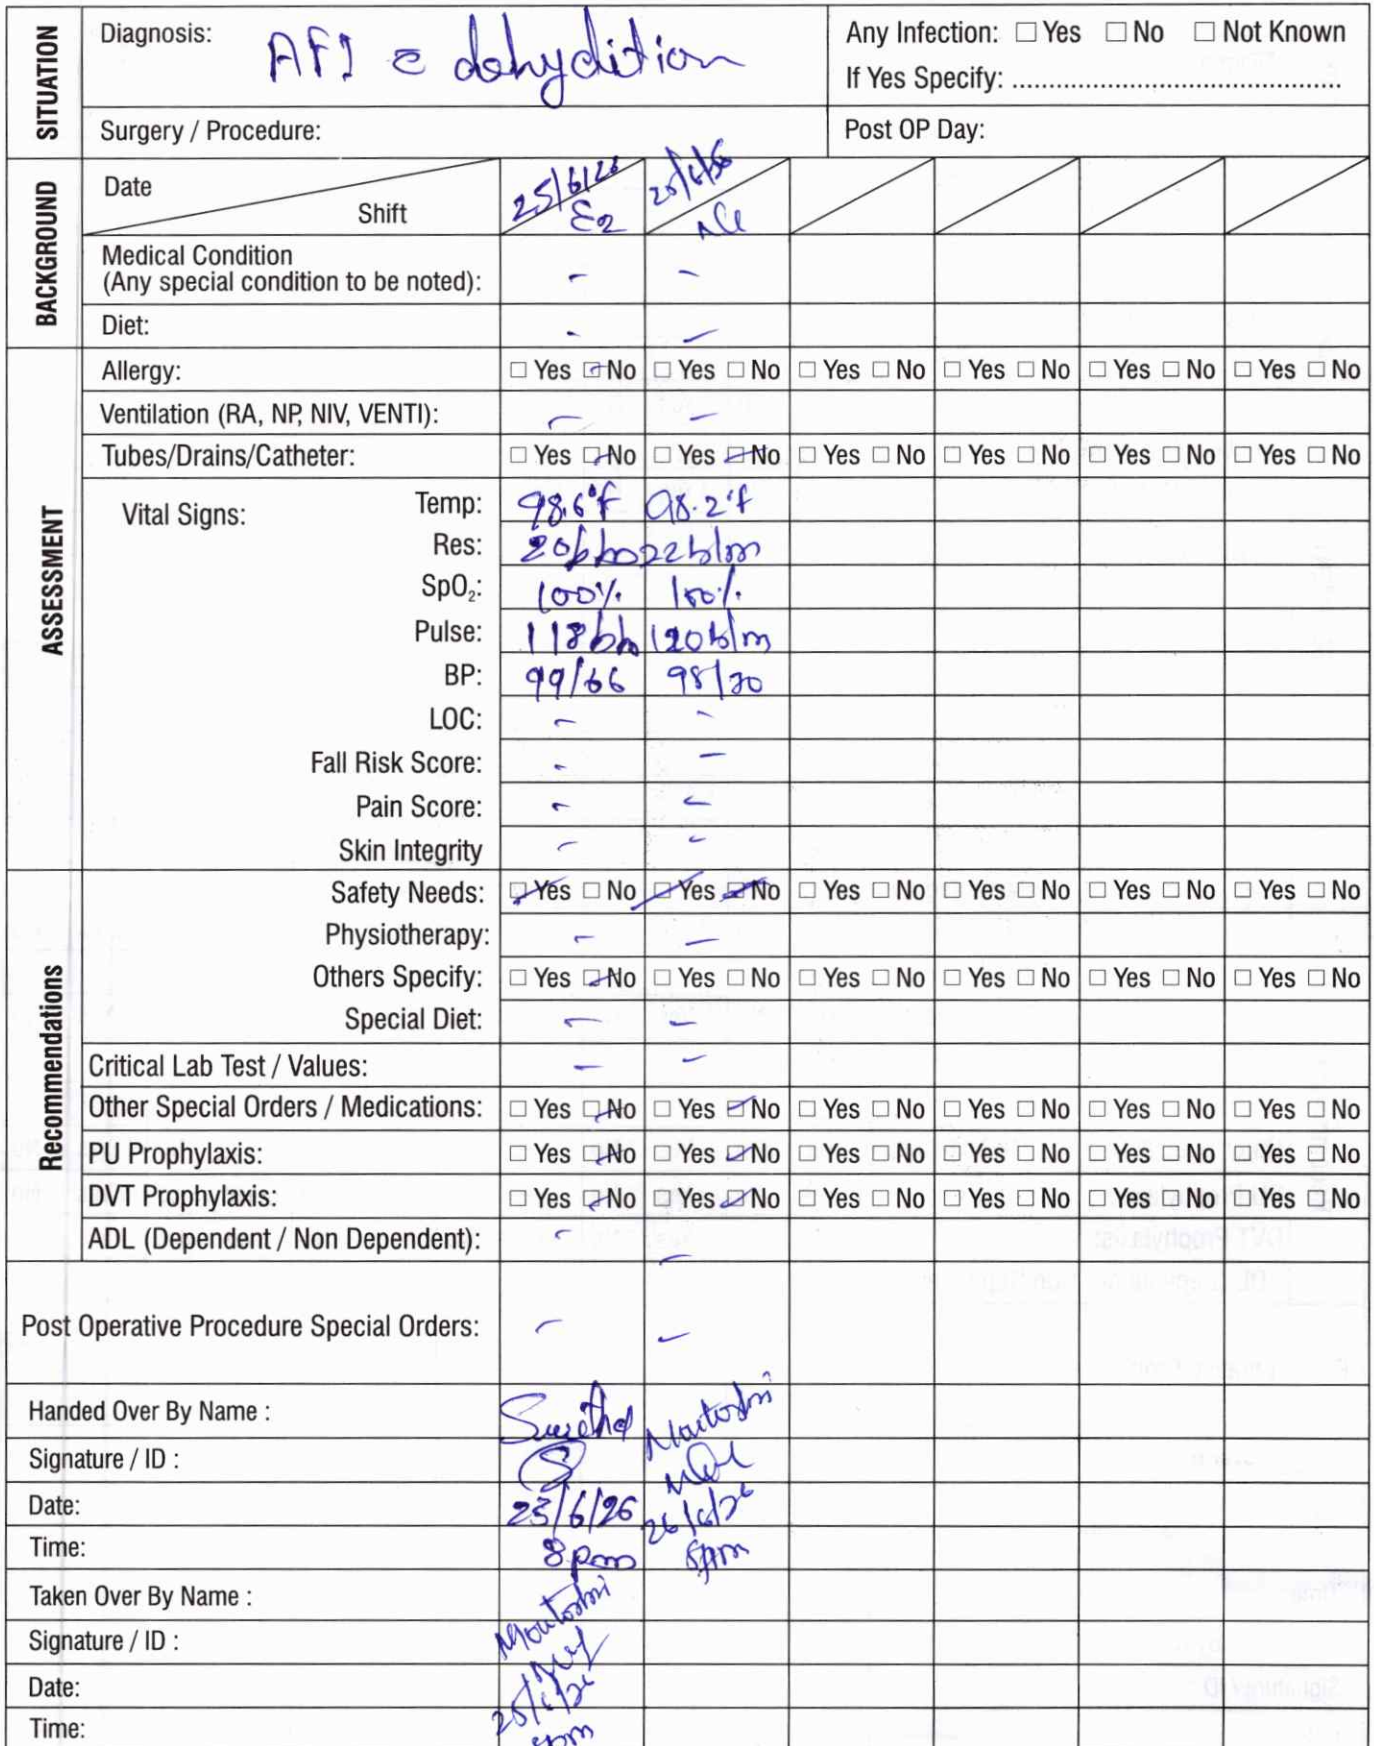 SITUATION
Diagnosis: AFI c dehydition
Any Infection: ☐ Yes ☐ No ☐ Not Known
If Yes Specify: ............................................
Surgery / Procedure:
Post OP Day:
BACKGROUND
Date 25/6/26 25/6/26
Shift E2
Medical Condition
(Any special condition to be noted): - -
Diet: - -
ASSESSMENT
Allergy: ☐ Yes ☑ No ☐ Yes ☐ No ☐ Yes ☐ No ☐ Yes ☐ No ☐ Yes ☐ No ☐ Yes ☐ No
Ventilation (RA, NP, NIV, VENTI): - -
Tubes/Drains/Catheter: ☐ Yes ☑ No ☐ Yes ☑ No ☐ Yes ☐ No ☐ Yes ☐ No ☐ Yes ☐ No ☐ Yes ☐ No
Vital Signs: Temp: 98.6°f 98.2°f
Res: 20b/m 22b/m
SpO₂: 100% 100%
Pulse: 118b/m 120b/m
BP: 99/66 98/70
LOC: - -
Fall Risk Score: - -
Pain Score: - -
Skin Integrity - -
Recommendations
Safety Needs: ☑ Yes ☐ No ☑ Yes ☑ No ☐ Yes ☐ No ☐ Yes ☐ No ☐ Yes ☐ No ☐ Yes ☐ No
Physiotherapy: - -
Others Specify: ☐ Yes ☑ No ☐ Yes ☐ No ☐ Yes ☐ No ☐ Yes ☐ No ☐ Yes ☐ No ☐ Yes ☐ No
Special Diet: - -
Critical Lab Test / Values: - -
Other Special Orders / Medications: ☐ Yes ☑ No ☐ Yes ☑ No ☐ Yes ☐ No ☐ Yes ☐ No ☐ Yes ☐ No ☐ Yes ☐ No
PU Prophylaxis: ☐ Yes ☑ No ☐ Yes ☑ No ☐ Yes ☐ No ☐ Yes ☐ No ☐ Yes ☐ No ☐ Yes ☐ No
DVT Prophylaxis: ☐ Yes ☑ No ☐ Yes ☑ No ☐ Yes ☐ No ☐ Yes ☐ No ☐ Yes ☐ No ☐ Yes ☐ No
ADL (Dependent / Non Dependent): - -
Post Operative Procedure Special Orders: - -
Handed Over By Name : Moutoshi
Signature / ID :
Date: 25/6/26 26/6/26
Time: 8pm 8pm
Taken Over By Name : Moutoshi
Signature / ID :
Date: 25/6/26
Time: